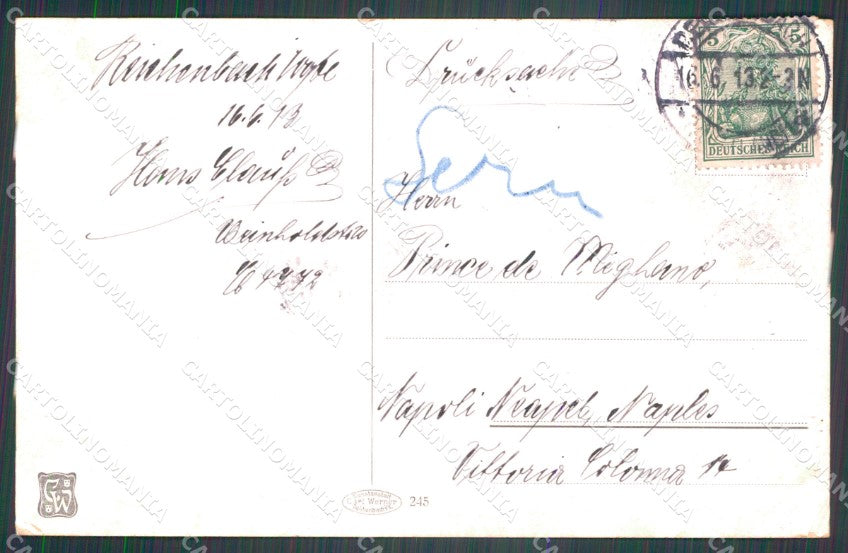 Reichenbach
16.6.13
Hans Clauß
C 4772
Drucksache
Herrn
Prince de Migliano,
Napoli Neapel, Naples
Vittoria Colonna 14
16.6.13.2-3N
DEUTSCHES REICH
5
5
245
CARTOLINOMANIA